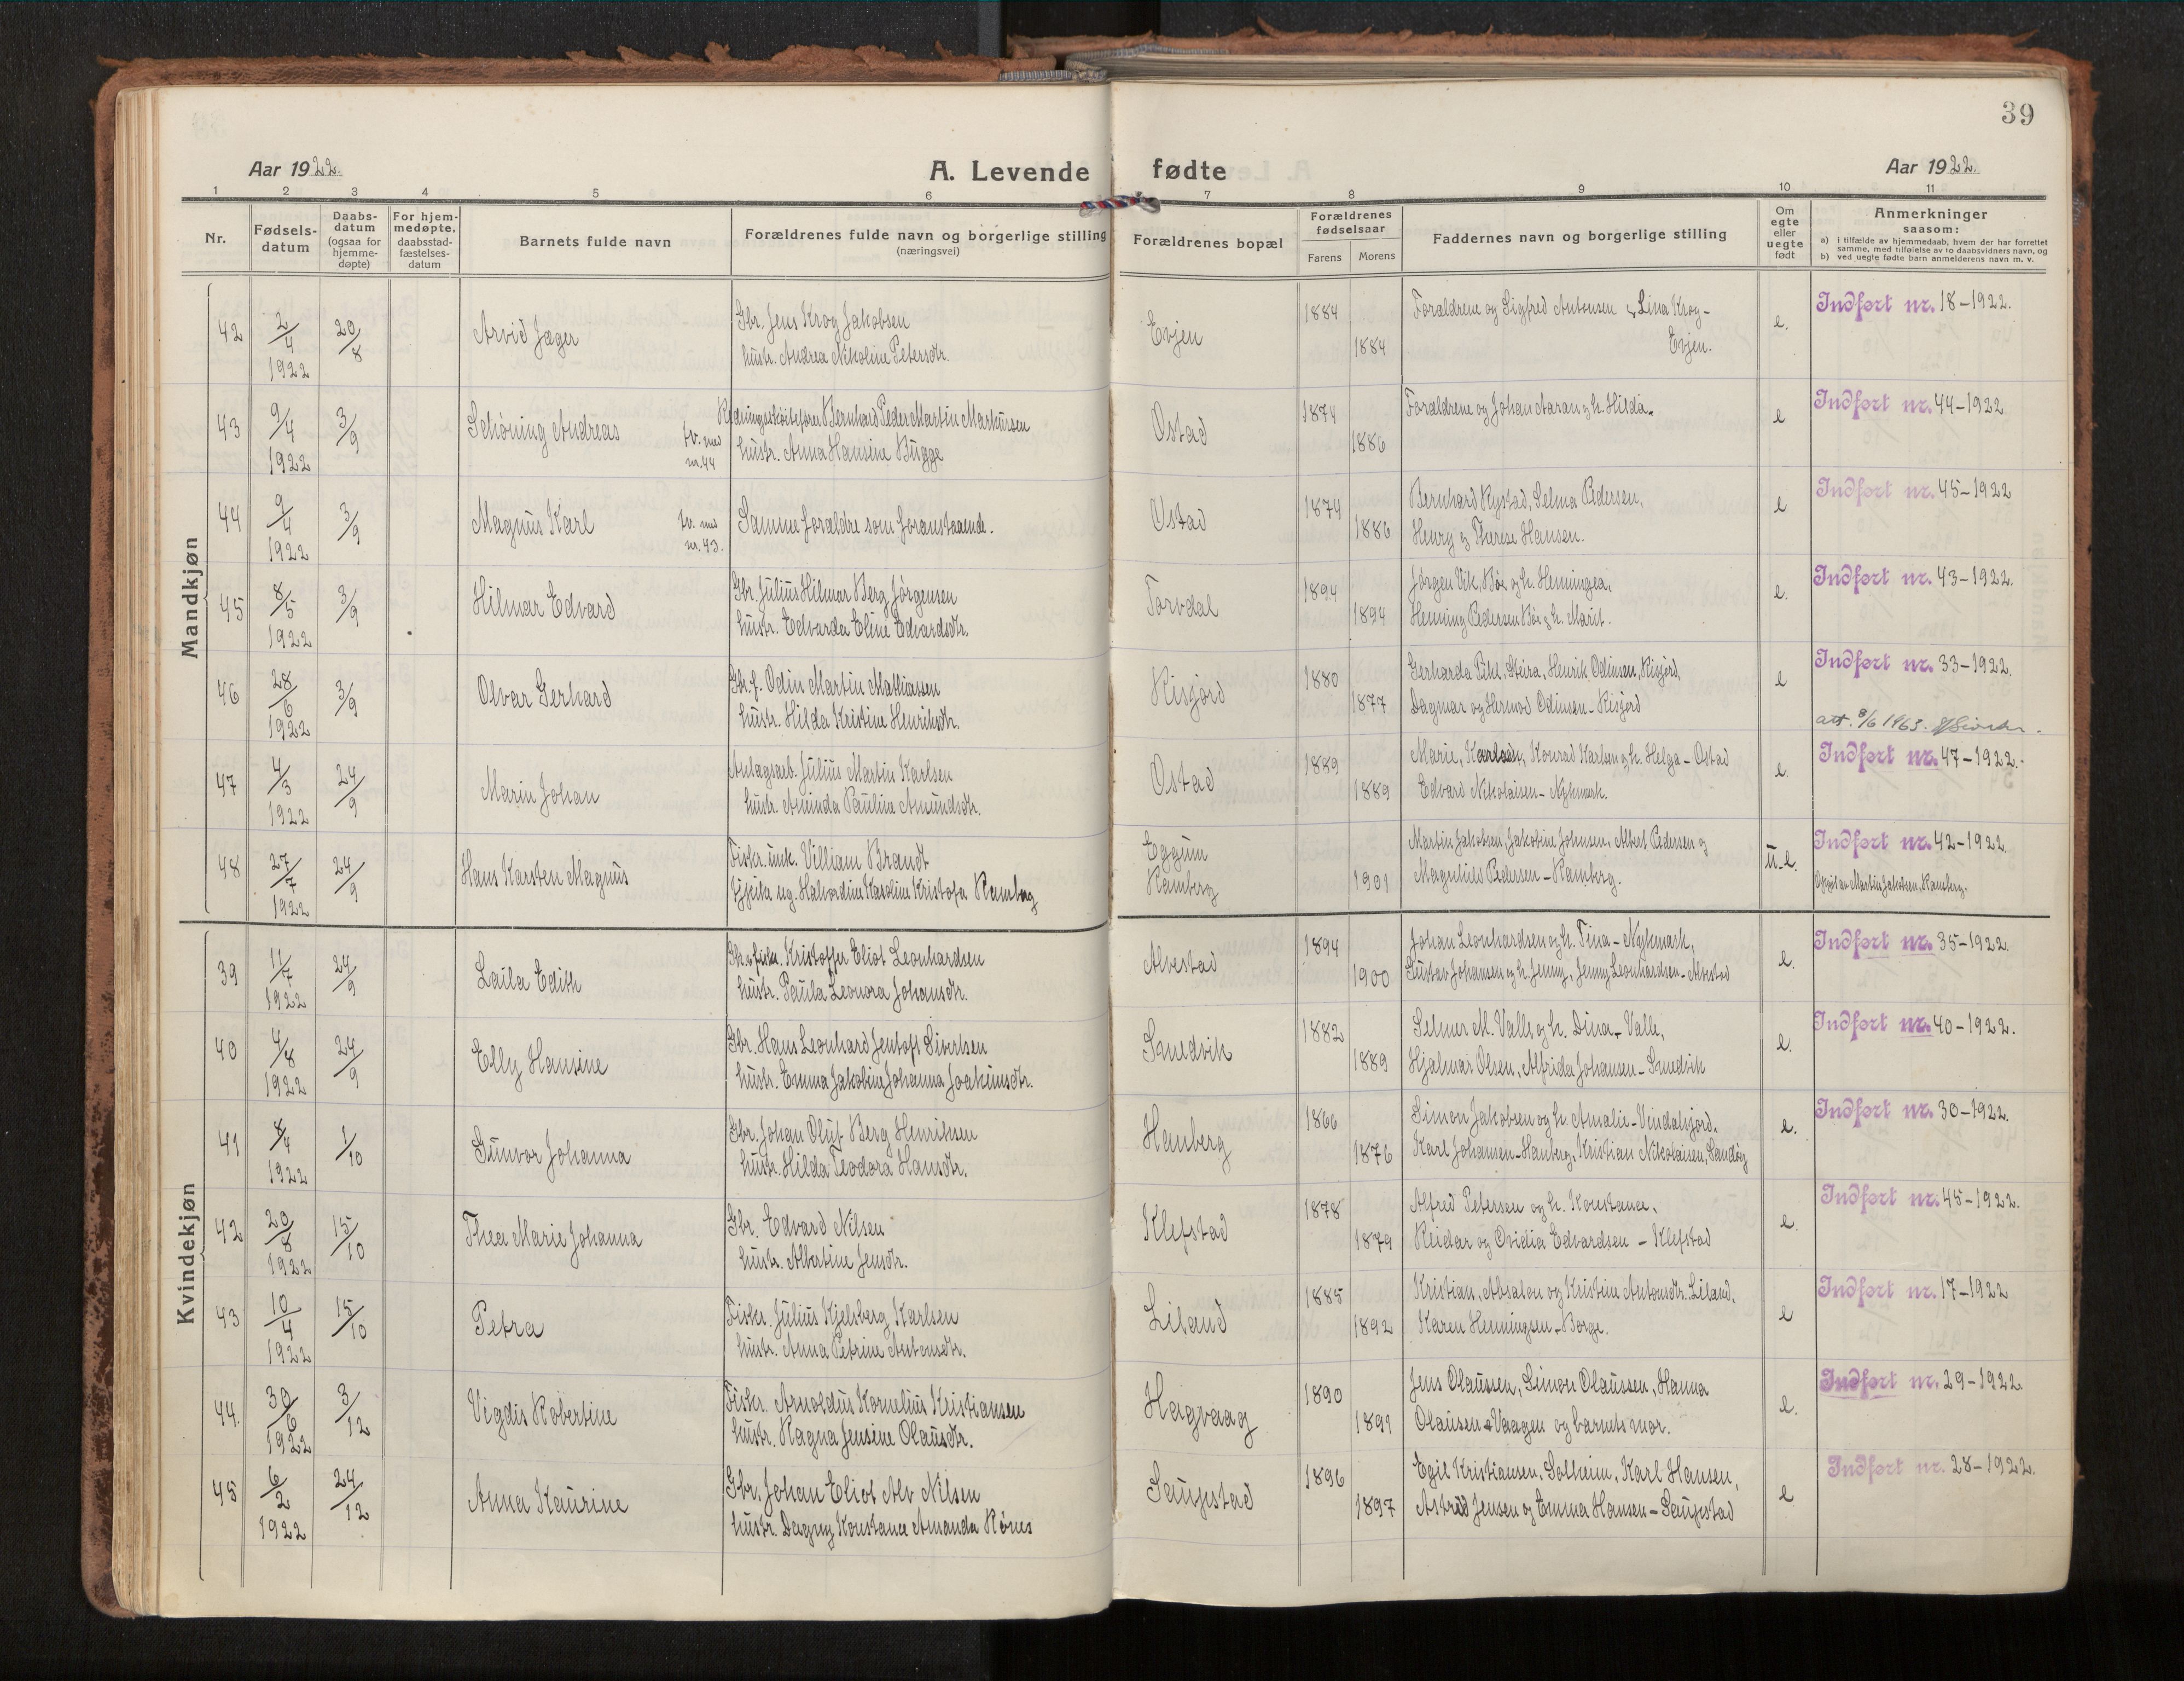 39
Aar 1922.
A. Levende fødte
Aar 1922.
1 2 3 4 5 6 7 8 9 10 11
Nr.
Fødsels-
datum
Daabs-
datum
(ogsaa for
hjemme-
døpte)
For hjem-
medøpte,
daabsstad-
fæstelses-
datum
Barnets fulde navn
Forældrenes fulde navn og borgerlige stilling
(næringsvei)
Forældrenes bopæl
Forældrenes
fødselsaar
Farens Morens
Faddernes navn og borgerlige stilling
Om
egte
eller
uegte
født
Anmerkninger
saasom:
a) i tilfælde av hjemmedaab, hvem der har forrettet
samme, med tilføielse av to daabsvidners navn, og
b) ved uegte fødte barn anmelderens navn m. v.
Mandkjøn
42 2/4 1922 20/8 Arvid Jæger
Gbr. Jens Krog Jakobsen
hustr. Andrea Nikoline Petersdtr.
Evjen 1884 1884
Forældrene og Sigfred Antonsen & Lina Krog-
Evjen.
e. Indført nr. 18-1922.
43 9/4 1922 3/9 Schøning Andreas tv. med nr. 44
Redningsskøitefører Bernhard Peder Martin Markussen
hustr. Anna Hansine Bugge
Ostad 1874 1886
Forældrene og Johan Aaran og h. Hilda.
e Indført nr. 44-1922
44 9/4 1922 3/9 Magnus Karl tv. med nr. 43.
Samme forældre som foranstaaende.
Ostad 1874 1886
Bernhard Rystad, Selma Pedersen,
Henry og Therese Hansen.
e Indført nr. 45-1922
45 8/5 1922 3/9 Hilmar Edvard
Gbr. Julius Hilmar Berg Jørgensen
hustr. Edvarda Eline Edvardsdtr.
Torvdal 1894 1894
Jørgen Vik, Bø og h. Henningea,
Henning Pedersen Bø og h. Marit.
e. Indført nr. 43-1922.
46 28/6 1922 3/9 Olvar Gerhard
Gbr. f. Odin Martin Mathiassen
hustr. Hilda Kristine Henriksdtr.
Risfjord 1880 1877
Gerharda Steira, Henrik Odinsen, Risfjord,
Dagmar og Hermod Odinsen-Risfjord
e Indført nr. 33-1922.
att. 8/6 1963.
47 4/3 1922 24/9 Marin Johan
Anlagsarb. Julius Martin Karlsen
hustr. Aminda Pauline Amundsdtr.
Ostad 1889 1889
Marie, Karlsen, Konrad Karlsen og h. Helga - Ostad
Edvard Nikolaisen- Nykmark.
e. Indført nr. 47-1922.
48 27/7 1922 24/9 Hans Karsten Magnus
Fiskr. unk. Villiam Brandt
pike ug. Halvordine Karoline Kristofa Ramberg
Eggum
Ramberg 1901
Martin Jakobsen, Jakobine Johnsen, Albert Pedersen og
Magnhild Pedersen - Ramberg.
u.e. Indført nr. 42-1922
Opgit av Martin Jakobsen, Ramberg.
Kvindekjøn
39 11/7 1922 24/9 Laila Edith
Gbr. & fiskr. Kristoffer Eliot Leonhardsen
hustr. Paula Leonora Johansdtr.
Alvestad 1894 1900
Johan Leonhardsen og h. Tina - Nykmark,
Gustav Johansen og h. Jenny, Jenny Leonhardsen - Alvestad
e. Indført nr. 35-1922.
40 4/8 1922 24/9 Elly Hansine
Gbr. Hans Leonhard Jentoft Sivertsen
hustr. Emma Jakobine Johanna Joakimsdtr.
Smedvik 1882 1889
Selmer M. Valle og h. Dina - Valle,
Hjalmar Olsen, Alfrida Johansen - Smedvik
e. Indført nr. 40-1922.
41 8/4 1922 1/10 Gunvor Johanna
Gbr. Johan Oluf Berg Henriksen
hustr. Hilda Teodora Hansdtr.
Hanberg 1866 1876
Simon Jakobsen og h. Amalie - Vindalsjord,
Karl Johansen-Hanberg, Kristian Nikolaisen, Sandøy
e. Indført nr. 30-1922.
42 20/8 1922 15/10 Thea Marie Johanna
Gbr. Edvard Nilsen
hustr. Albertine Jensdtr.
Klefstad 1878 1879
Alfred Petersen og h. Konstance,
Reidar og Ovidia Edvardsen - Klefstad
e. Indført nr. 45-1922.
43 10/4 1922 15/10 Petra
Fiskr. Julius Kjelsberg Karlsen
hustr. Anna Petrine Antonsdtr.
Liland 1885 1892
Kristian, Absalon og Kristine Antonsdtr. Liland,
Karen Henningsen - Borge.
e Indført nr. 17-1922
44. 30/6 1922 3/12 Vigdis Robertine
Fiskr. Arnoldus Kornelius Kristiansen
hustr. Ragna Jensine Olausdtr.
Hagvaag 1890 1891
Jens Olaussen, Simon Olaussen, Hanna
Olausen - Vaagen og barnets mor.
e. Indført nr. 29-1922.
45 6/2 1922 24/12 Anna Kaurine
Gbr. Johan Eliot Alv Nilsen
hustr. Dagny Konstance Amanda Rønes
Saupstad 1896 1897
Egil Kristiansen, Solheim, Karl Hansen,
Astrid Jensen og Emma Hansen - Saupstad
e Indført nr. 28-1922.